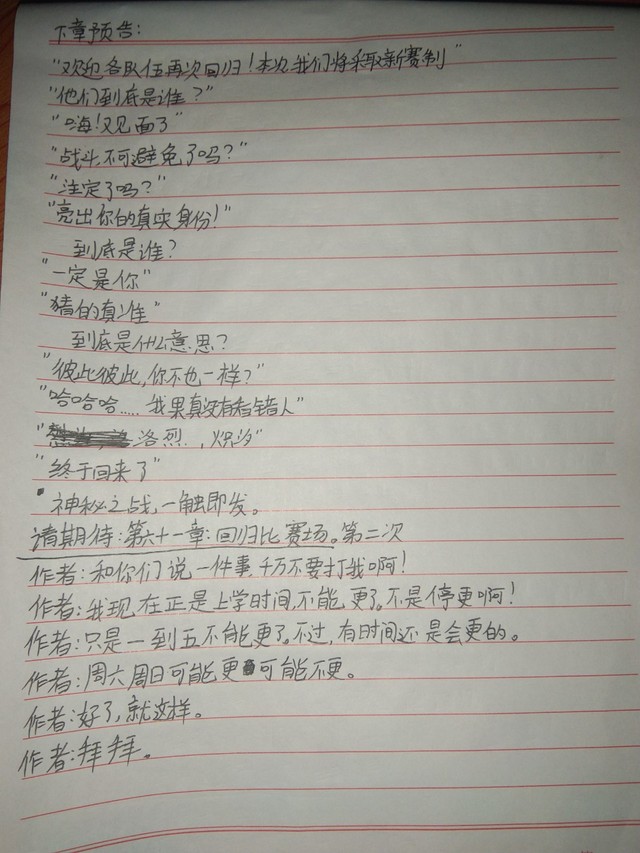 下章预告:
“欢迎各队伍再次回归!本次我们将采取新赛制”
“他们到底是谁?”
“嗨!又见面了”
“战斗不可避免了吗?”
“注定了吗?”
“亮出你的真实身份!”
到底是谁?
“一定是你”
“猜的真准”
到底是什么意思?
“彼此彼此,你不也一样?”
“哈哈哈.....我果真没有看错人”
洛烈.,炽汐”
“终于回来了”
神秘之战,一触即发。
请期待:第六十一章:回归比赛场。第二次
作者:和你们说一件事,千万不要打我啊!
作者:我现在正是上学时间,不能更了。不是停更啊!
作者:只是一到五不能更了。不过,有时间还是会更的。
作者:周六周日可能更可能不更。
作者:好了,就这样。
作者:拜拜。